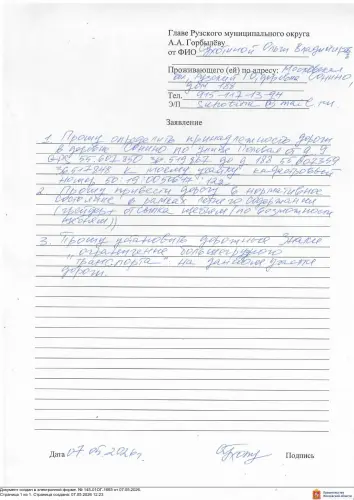 Главе Рузского муниципального округа
А.А. Горбылёву.
от ФИО Ольги Владимировны
Проживающего (ей) по адресу: Московская
обл, Рузский ГО, деревня
дом 188
Тел. 915-112-13-94
Э/П
Заявление
1. Прошу определить принадлежность дороги
в деревне по улице от д. 9
до д 188 55.602559
к моему участку кадастровый
номер 50:19:
2. Прошу привести дорогу в нормативное
состояние в рамках содержания
(грейдер отсыпка щебнем (по возможности
щебня))
3. Прошу установить дорожные знаки
"ограничение большегрузного
транспорта" на данном участке
дороги.
Дата 07.05.2026г. Подпись
Документ создан в электронной форме. № 145-01ОГ-1683 от 07.05.2026.
Страница 1 из 1. Страница создана: 07.05.2026 12:23